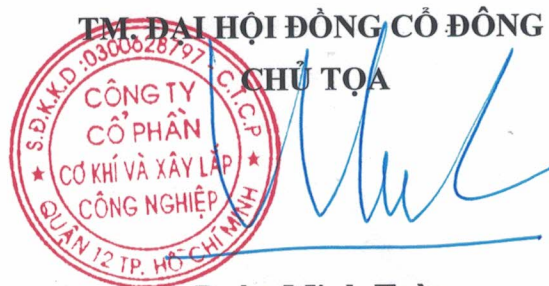 TM. ĐẠI HỘI ĐỒNG CỔ ĐÔNG
CHỦ TỌA
S.Đ.K.K.D:0300628797-C.T.C.P
CÔNG TY
CỔ PHẦN
CƠ KHÍ VÀ XÂY LẮP
CÔNG NGHIỆP
QUẬN 12 TP. HỒ CHÍ MINH